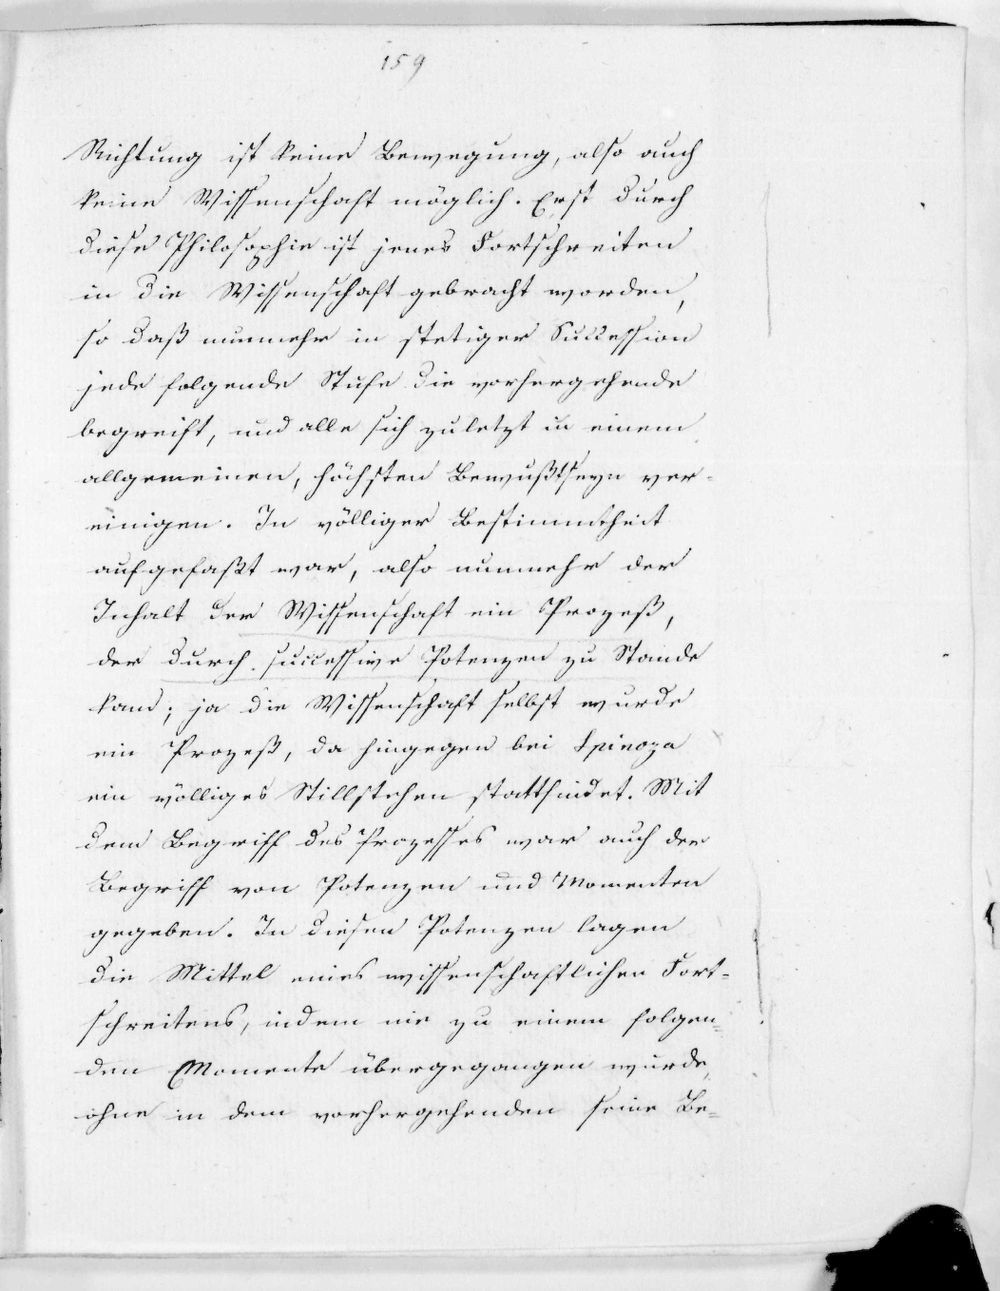 159
Richtung ist keine Bewegung, also auch
keine Wissenschaft möglich. Erst durch
diese Philosophie ist jenes Fortschreiten
in die Wissenschaft gebracht worden,
so daß nunmehr in stetiger Succession
jede folgende Stufe die vorhergehende
begreift, und alle sich zuletzt in einem
allgemeinen, höchsten Bewußtseyn ver-
einigen. In völliger Bestimmtheit
aufgefaßt war, also nunmehr der
Inhalt der Wissenschaft ein Prozeß,
der durch successive Potenzen zu Stande
kam; ja die Wissenschaft selbst wurde
ein Prozeß, da hingegen bei Spinoza
ein völliges Stillstehen stattfindet. Mit
dem Begriff des Prozesses war auch der
Begriff von Potenzen und Momenten
gegeben. In diesen Potenzen lagen
die Mittel eines wissenschaftlichen Fort-
schreitens, indem nie zu einem folgen-
den Momente übergegangen wurde,
ohne in dem vorhergehenden seine Be-